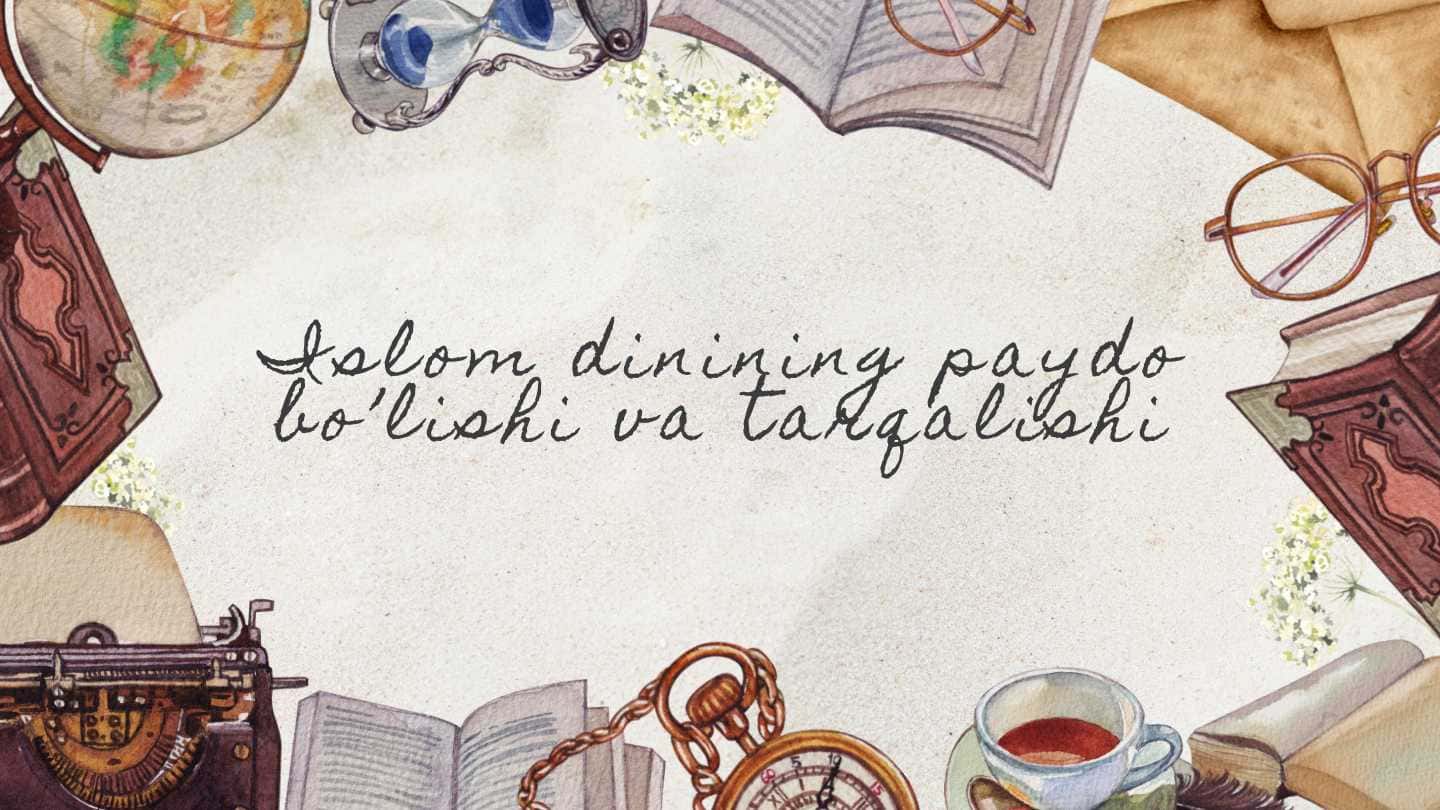 Islom dinining paydo
bo'lishi va tarqalishi